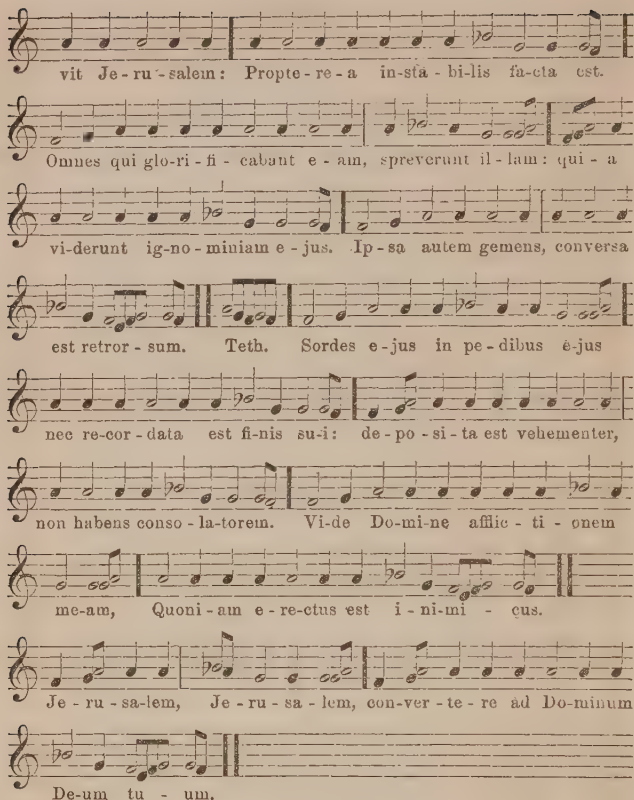 vit Je - ru - salem: Propte - re - a in-sta - bi-lis fa-cta est.
Omnes qui glo-ri - fi - cabant e - am, spreverunt il - lam: qui - a
vi-derunt ig-no - miniam e - jus. Ip - sa autem gemens, conversa
est retror - sum. Teth. Sordes e-jus in pe - dibus e-jus
nec re-cor - data est fi-nis su-i: de-po - si-ta est vehementer,
non habens conso - la-torem. Vi-de Do-mi-ne afflic - ti - onem
me-am, Quoni - am e - re-ctus est i - ni-mi - cus.
Je - ru - sa-lem, Je - ru - sa - lem, con-ver - te - re ad Do-minum
De-um tu - um.